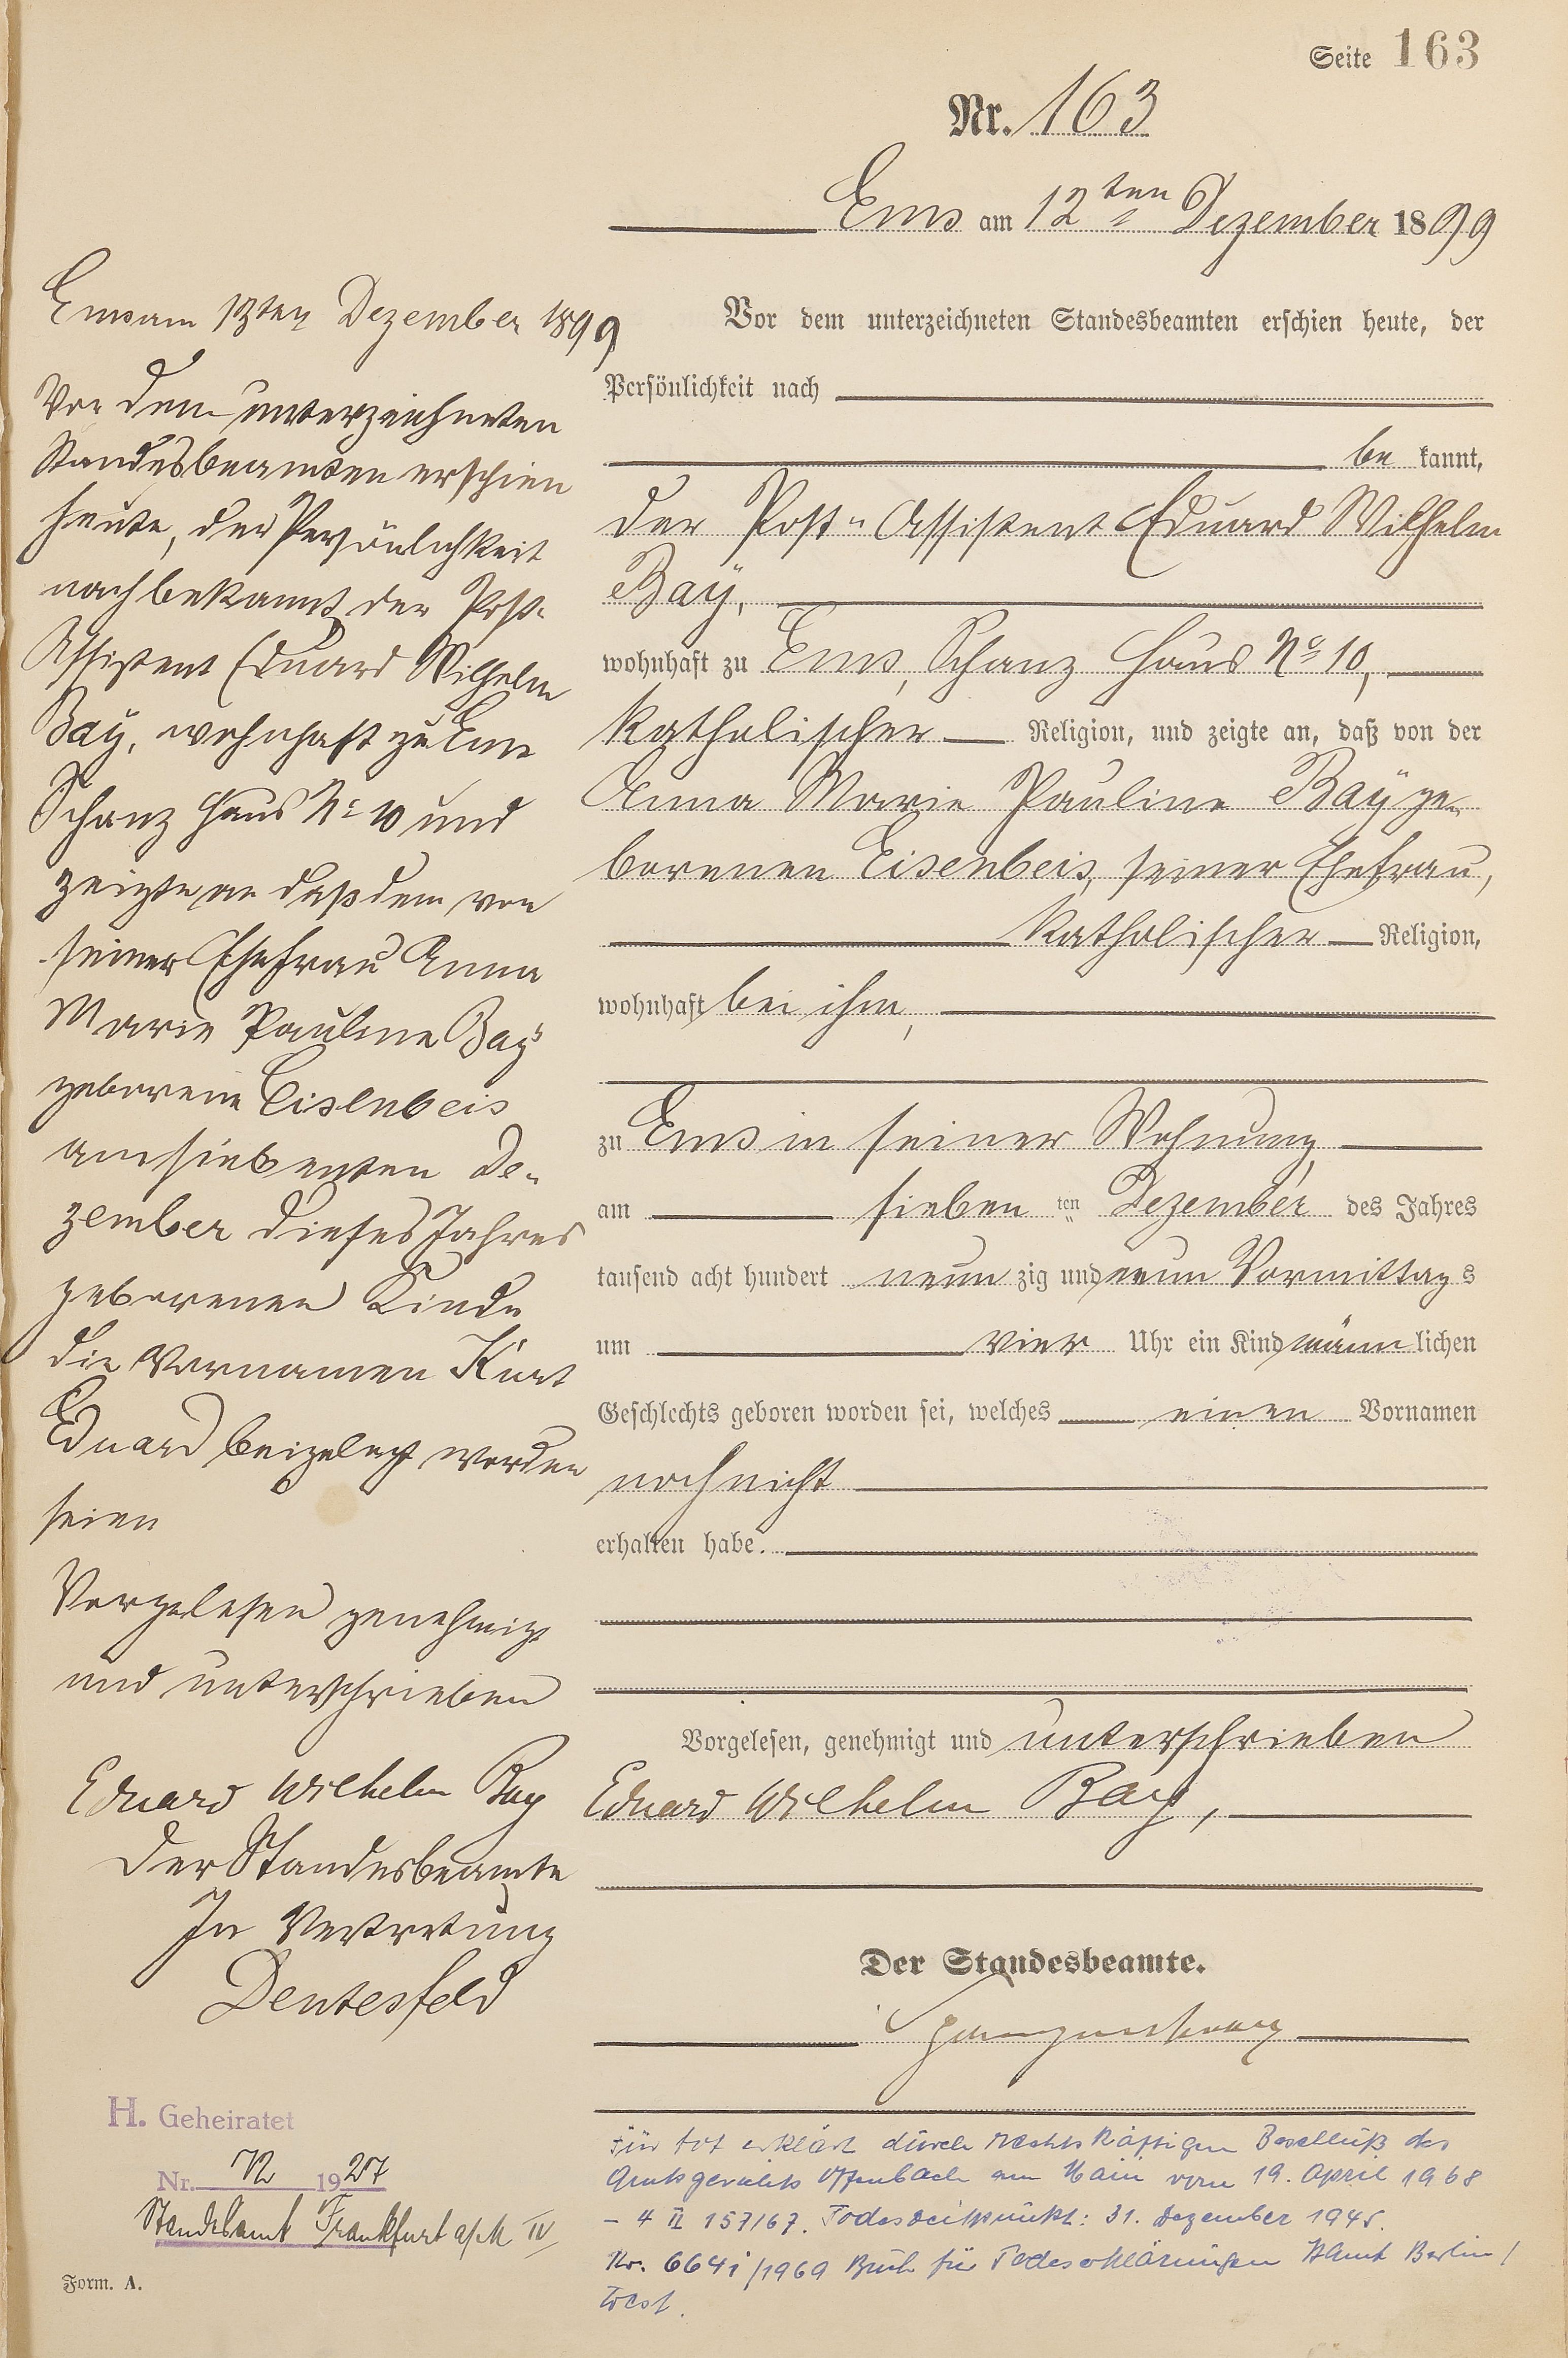 Seite 163
Nr. 163
Ems am 12ten Dezember 1899
Vor dem unterzeichneten Standesbeamten erschien heute, der
Persönlichkeit nach
be kannt,
der Post-Assistent Eduard Wilhelm
Baÿ,
wohnhaft zu Ems, Schanz Haus No 10,
katholischer Religion, und zeigte an, daß von der
Anna Marie Pauline Baÿ ge-
borenen Eisenbeis, seiner Ehefrau,
katholischer Religion,
wohnhaft bei ihm,
zu Ems in seiner Wohnung
am sieben ten Dezember des Jahres
tausend acht hundert neun zig und neun Vormittag s
um vier Uhr ein Kind männ lichen
Geschlechts geboren worden sei, welches einen Vornamen
noch nicht
erhalten habe.
Vorgelesen, genehmigt und unterschrieben
Eduard Wilhelm Bay,
Der Standesbeamte.
Für tot erklärt durch rechtskräftigen Beschluß des
Amtsgerichts Offenbach am Main vom 19. April 1968
- 4 II 157/67. Todeszeitpunkt: 31. Dezember 1945.
Nr. 664i/1969 Buch für Todeserklärungen StAmt Berlin/
West.
Ems am 13ten Dezember 1899
Vor dem unterzeichneten
Standesbeamten erschien
heute, der Persönlichkeit
nach bekannt, der Post-
Assistent Eduard Wilhelm
Baÿ, wohnhaft zu Ems
Schanz Haus No 10 und
zeigte an daß dem von
seiner Ehefrau Anna
Marie Pauline Baÿ
geborene Eisenbeis
am siebenten De-
zember dieses Jahres
geborenen Kinde
die Vornamen Kurt
Eduard beigelegt worden
seien
Vorgelesen genehmigt
und unterschrieben
Eduard Wilhelm Bay
Der Standesbeamte
In Vertretung
Dentesfeld
H. Geheiratet
Nr. 72 1927
Standesamt Frankfurt a/M IV
Form. A.